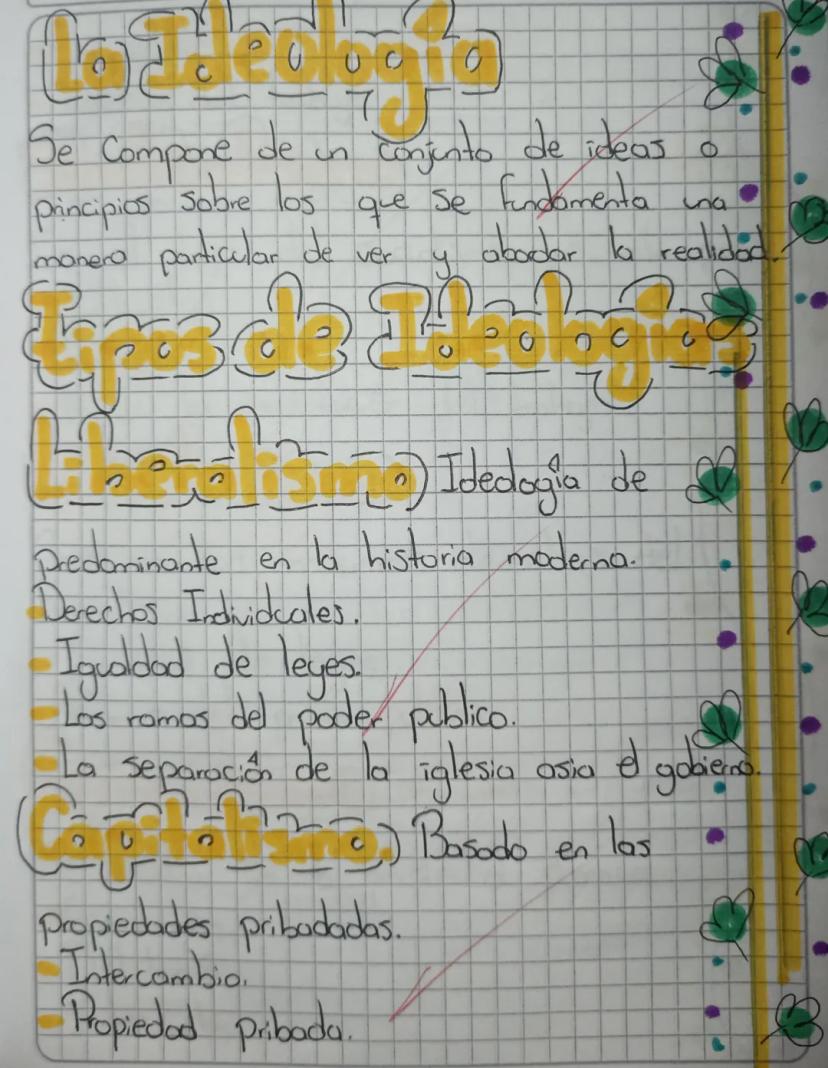 La Ideología
Se Compone de un conjunto de ideas o
principios sobre los que se fundamenta una
manera particular de ver y abordar la realidad.
Tipos de Ideologias
Liberalismo Ideología de
predominante en la historia moderna.
- Derechos Individuales.
- Igualdad de leyes.
- Los ramas del poder publico.
- La separación de la iglesia asia el gobierno.
Capitalismo. Basado en las
propiedades pribadadas.
- Intercambio.
- Propiedad pribada.